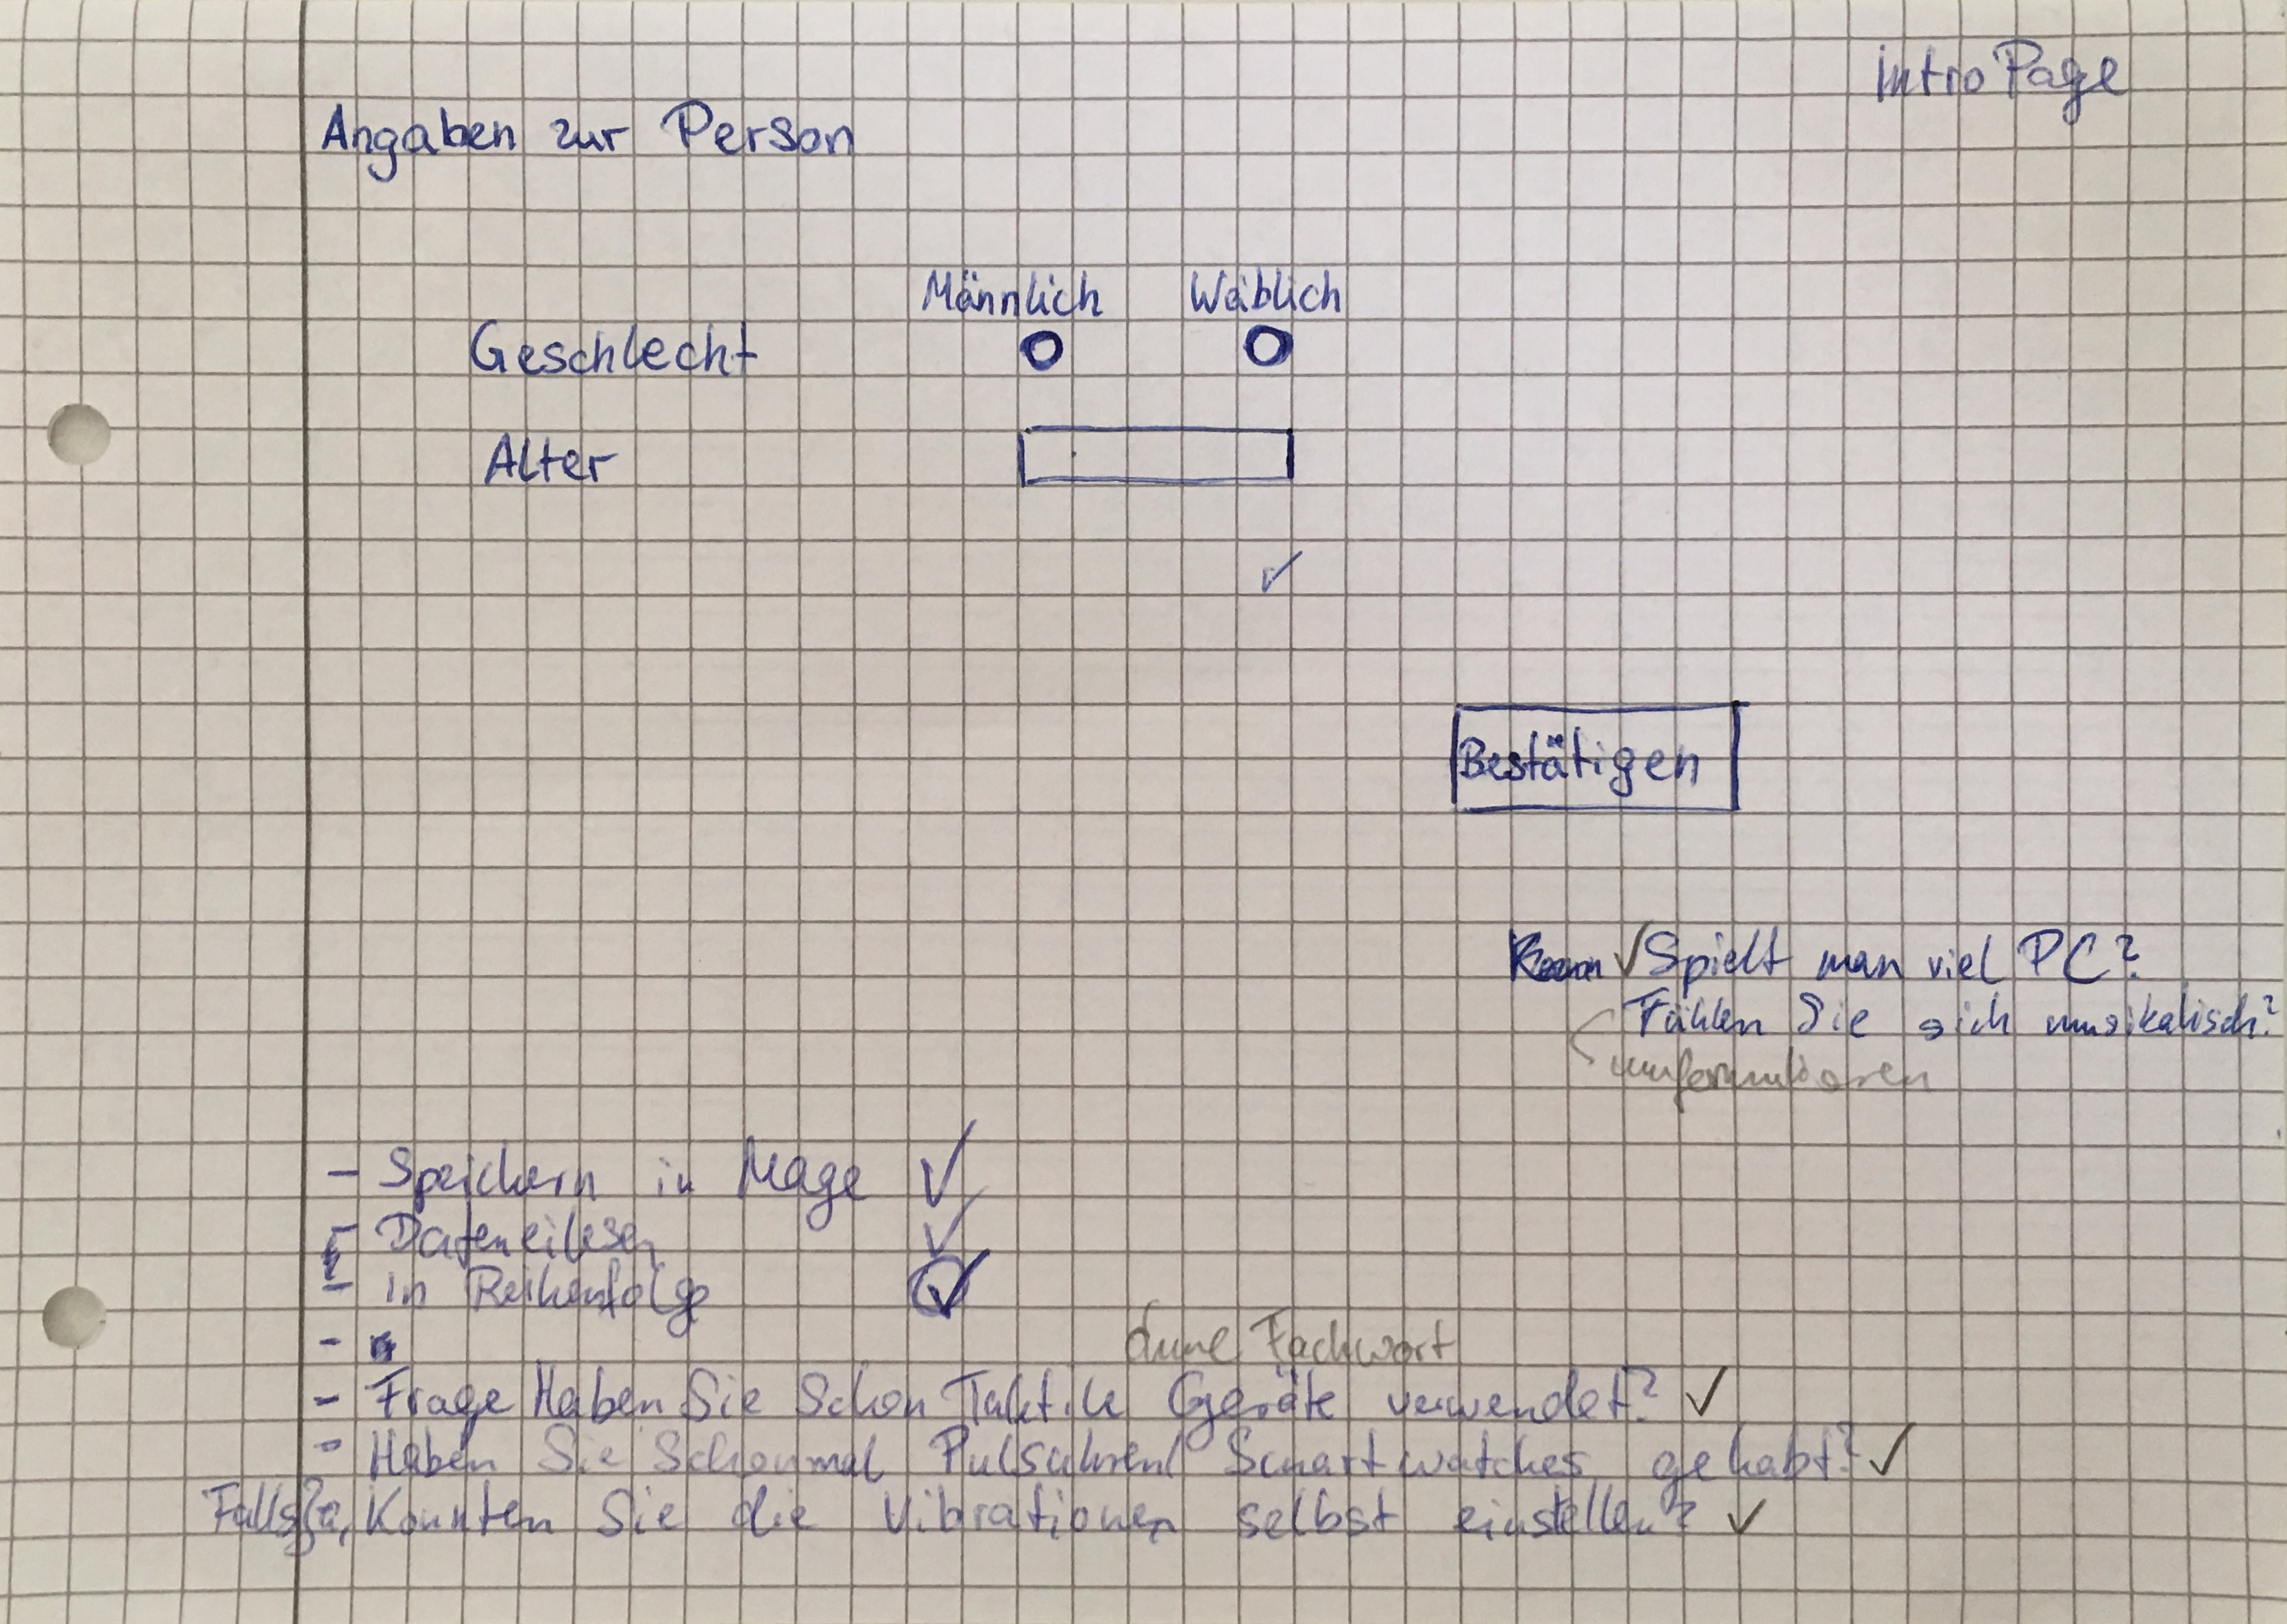 Intro Page
Angaben zur Person
Männlich Weiblich
Geschlecht
Alter
✓
Bestätigen
✓ Spielt man viel PC?
Fühlen Sie sich musikalisch?
umformulieren
- Speichern in Mage ✓
- Dateneilesen ✓
- in Reihenfolge ✓
-
ohne Fachwort
- Frage Haben Sie Schon Taktile Geräte verwendet? ✓
- Haben Sie Schonmal Pulsuhren/ Smartwatches gehabt? ✓
Falls Ja, Konnten Sie die Vibrationen selbst einstellen? ✓